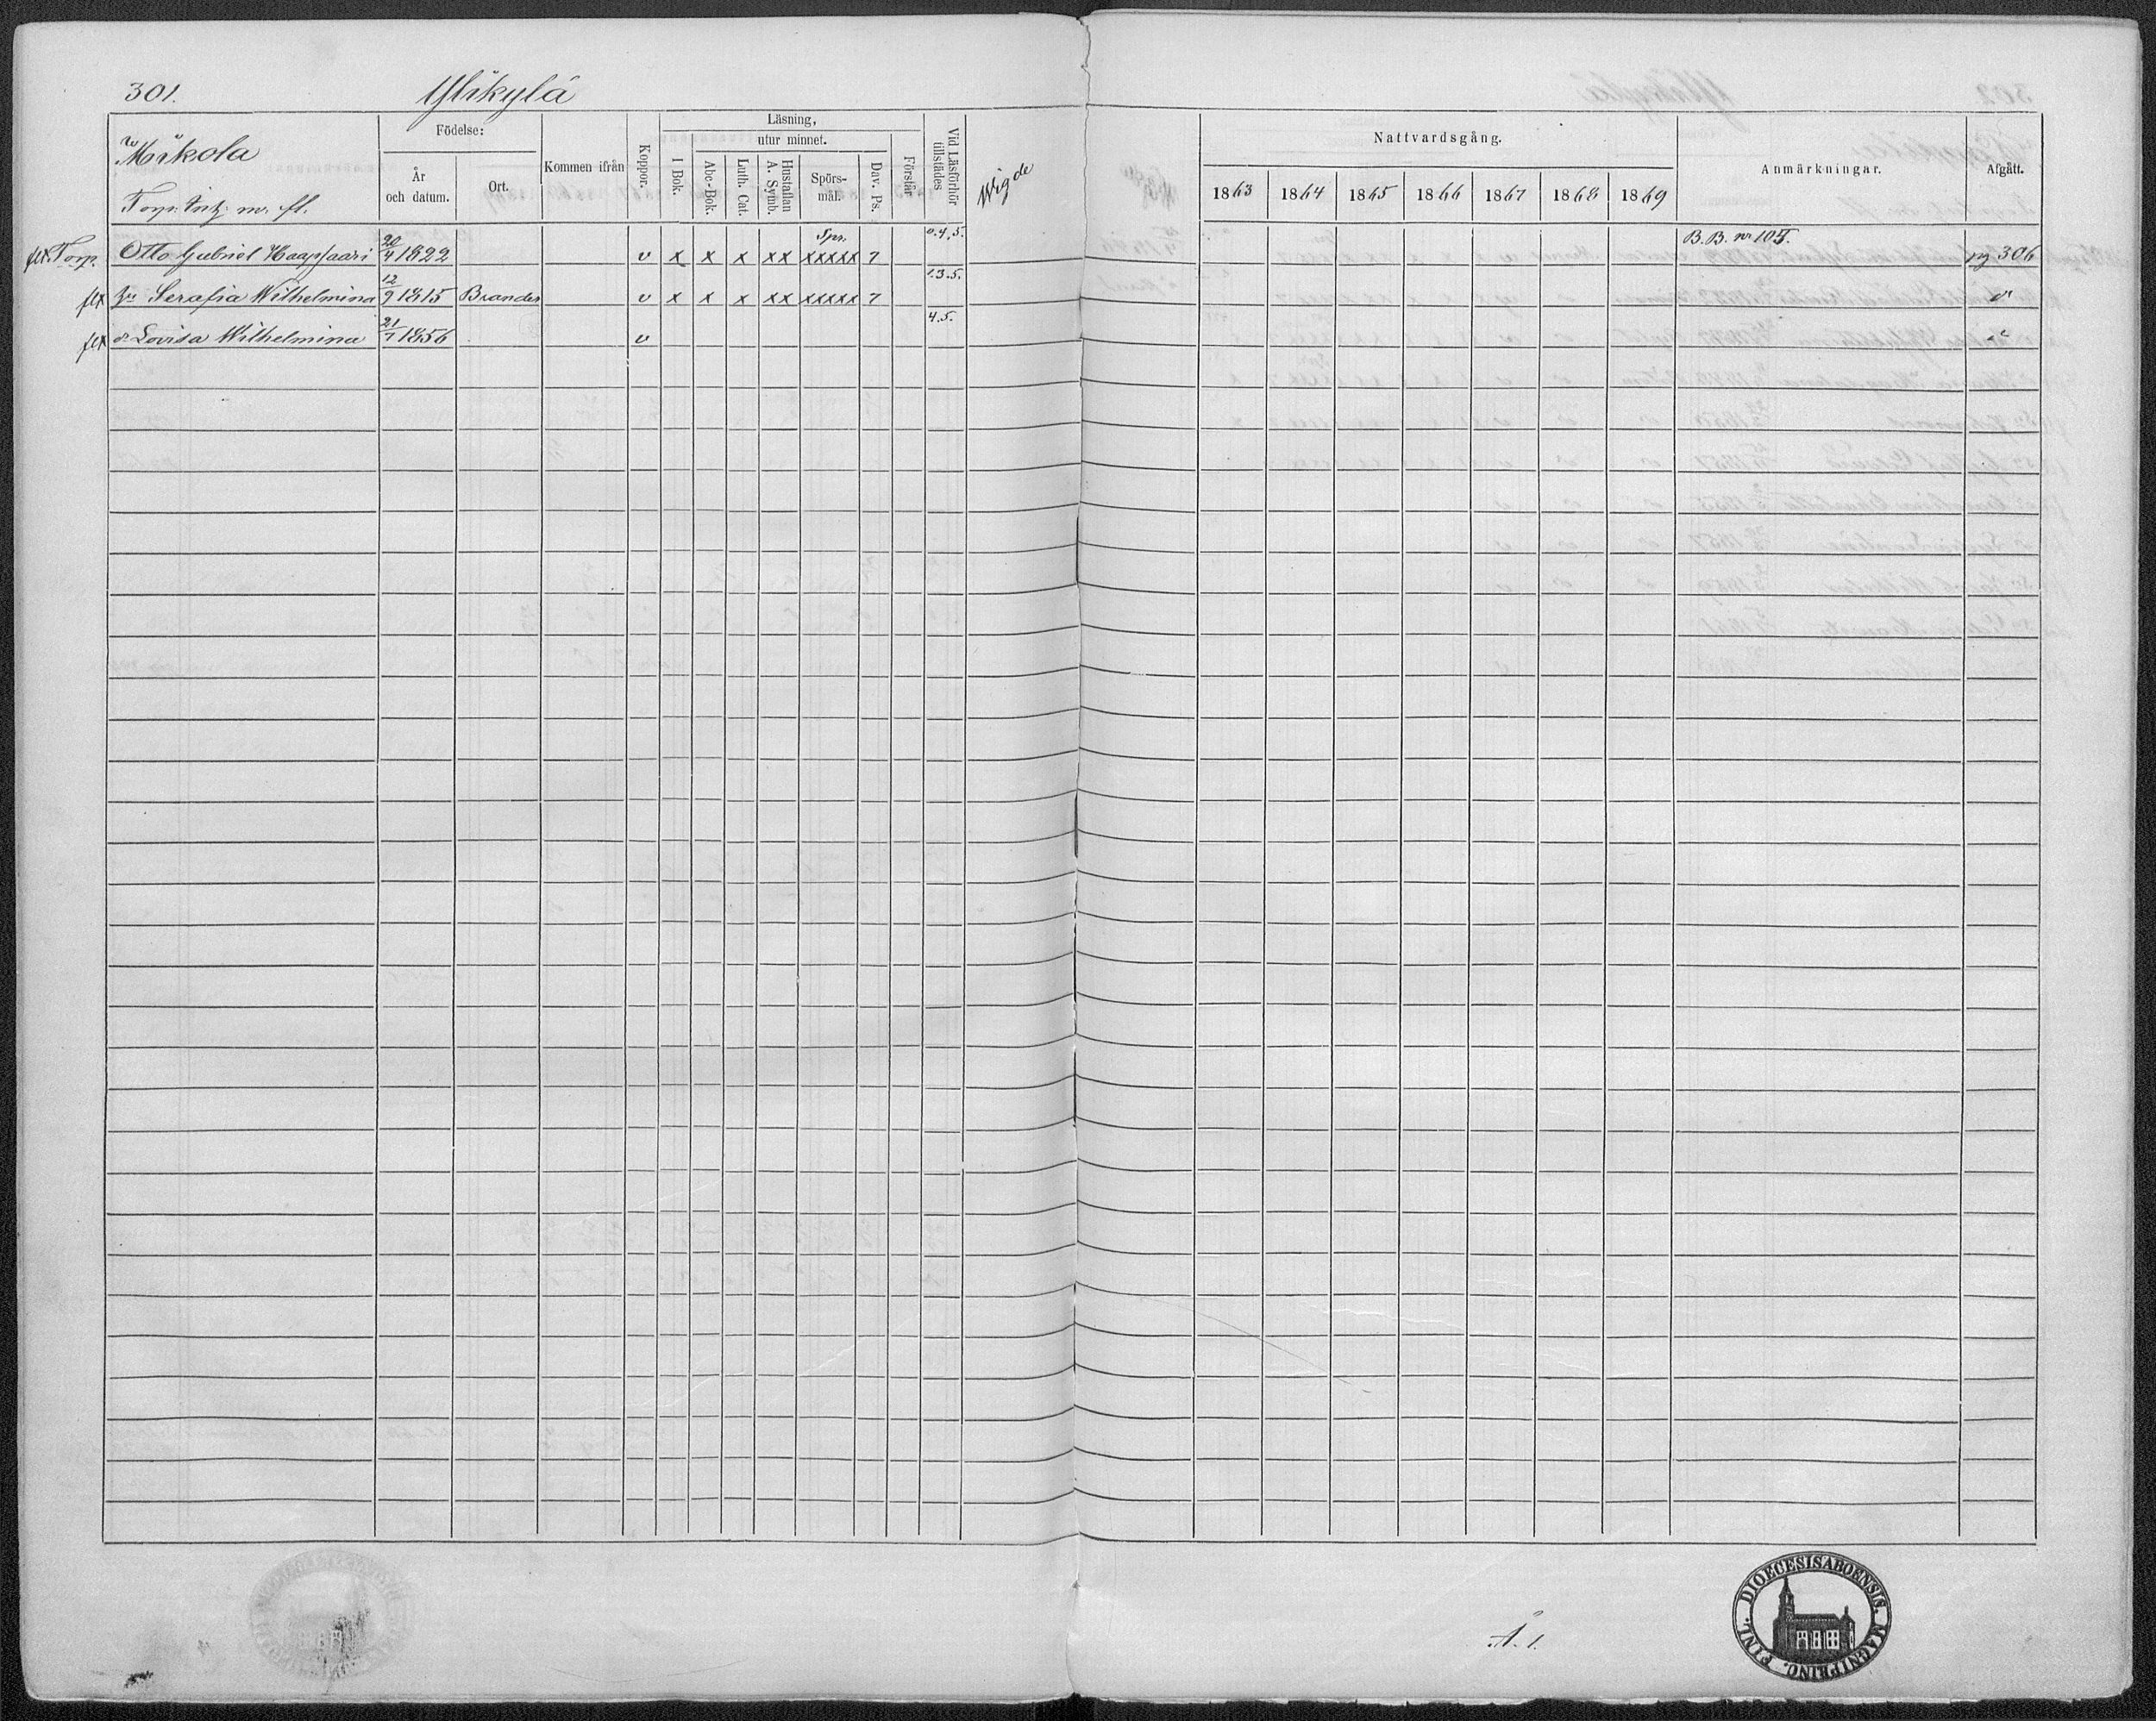 301. Ylikylä
Mikola
Torp. m. fl.
Födelse:
År och datum.
Ort.
Kommen ifrån
Koppor.
Läsning,
utur minnet.
I Bok.
Abc-Bok.
Luth. Cat.
Hustaflan A. Symb.
Spörs-mål.
Dav. Ps.
Förstår
Vid Läsförhör tillstädes
Wigde
Nattvardsgång.
1863 1864 1865 1866 1867 1868 1869
Anmärkningar.
Afgått.
Torp. Otto Gabriel Haapsaari 20/4 1822 v x x x xx Spr. xxxxx 7 0.4.5. B.B. nr 105. pg 306
hu Serafia Wilhelmina 12/9 1815 Brander v x x x xx xxxxx 7 1.3.5. d:o
dr Lovisa Wilhelmina 21/7 1856 v 4.5.
A. 1.
FINL. DIOECESIS ABOENSIS. MAGNI PRINC.